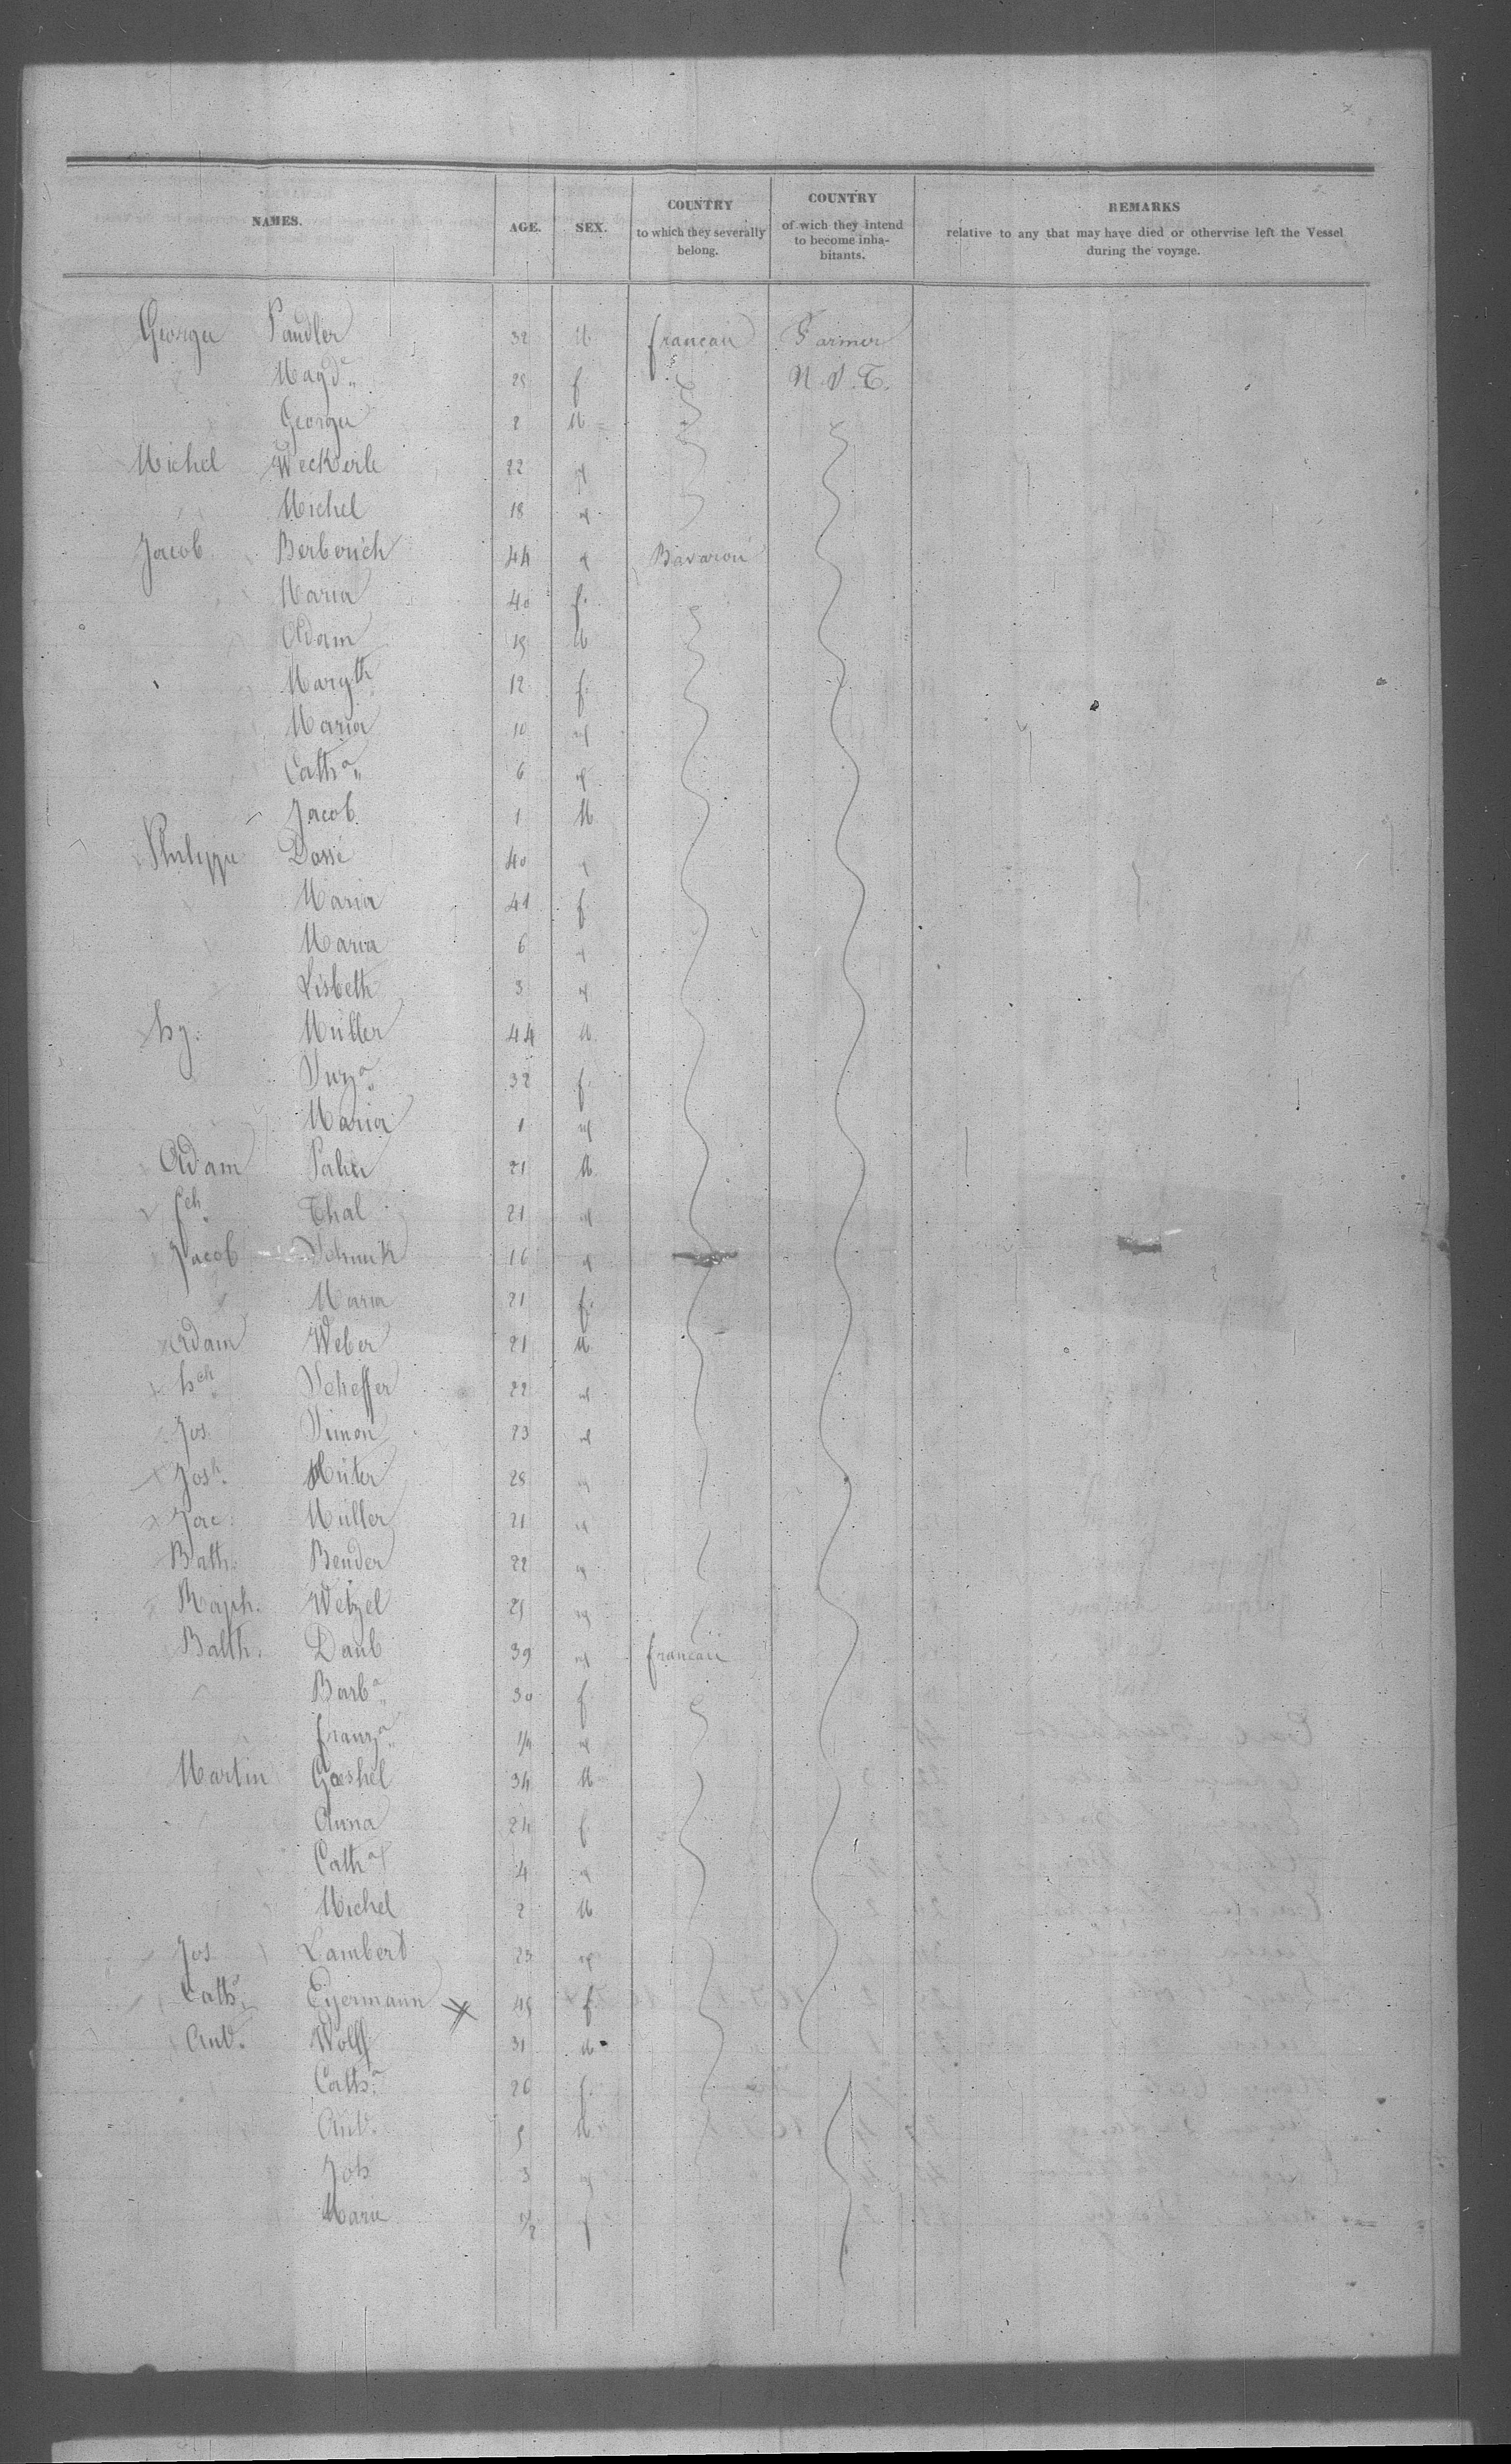 NAMES. AGE. SEX. COUNTRY to which they severally belong. COUNTRY of wich they intend to become inhabitants. REMARKS relative to any that may have died or otherwise left the Vessel during the voyage.
George Paudler 32 M francais Farmer
Magda 25 f N. S. T.
George 2 M
Michel Weckerle 22 "
Michel 18 "
Jacob Berberich 44 " Bavarois
Maria 40 f.
Adam 15 M
Margth 12 f.
Maria 10 "
Catha 6 "
Jacob 1 M
Philippe Dossé 40 "
Maria 41 f
Maria 6 "
Lisbeth 3 "
hy. Müller 44 M
Suza 32 f.
Maria 1 "
Adam 21 M
Thal 21 "
Jacob Schunk 16 "
Maria 21 f.
Adam Weber 21 M
hch Scheffer 22 "
Jos Simon 23 "
Josh. Hüter 28 "
Jac. Müller 21 "
Bath. Bender 22 "
Raph. Wetzel 25 "
Balth. Daub 39 " francais
Barba 30 f
franza 1/4 "
Martin Goeshel 34 M
Anna 24 f
Catha 4 "
Michel 2 M
Jos Lambert 23 "
Caths. Eyermann 45 f
Ant. Wolff 31 M
Catha 26 f.
Ant. 5 M
Joh 3 "
Marie 1/2 f